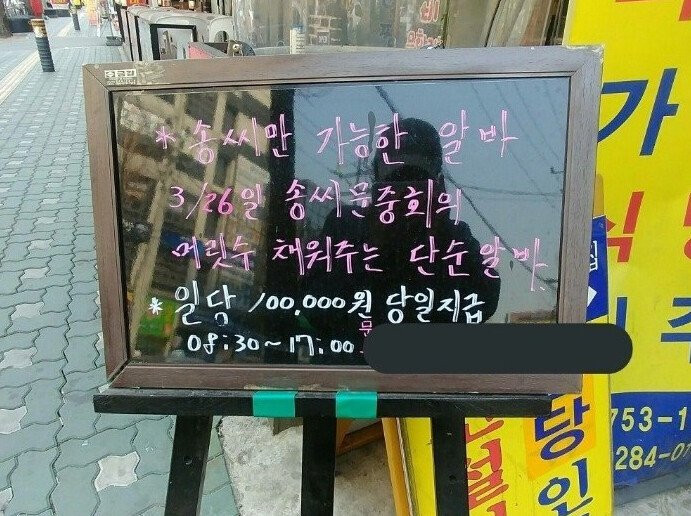 * 송씨만 가능한 알바
3/26일 송씨문중회의
머릿수 채워주는 단순알바
* 일당 100,000원 당일지급
08:30~17:00 문
가
식
753-1
284-0
당인